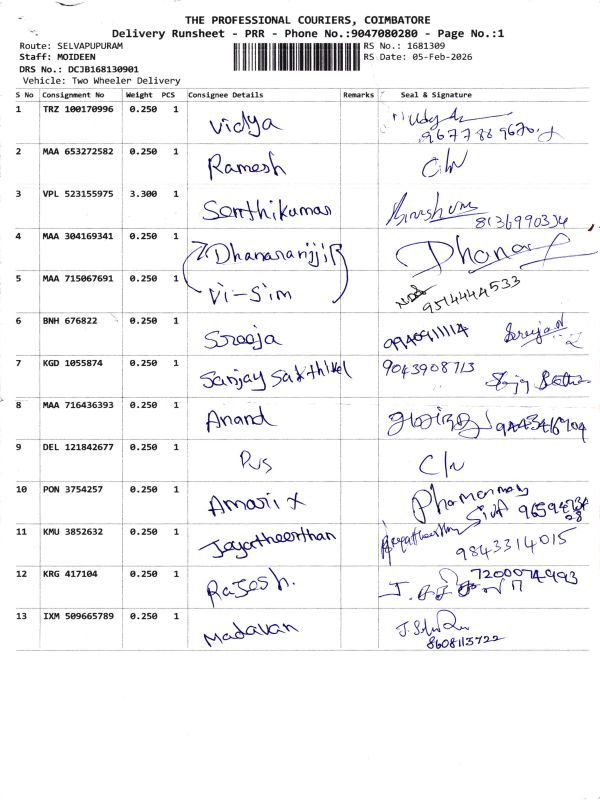 THE PROFESSIONAL COURIERS, COIMBATORE
Delivery Runsheet - PRR - Phone No.:9047080280 - Page No.:1
Route: SELVAPUPURAM
RS No.: 1681309
Staff: MOIDEEN
RS Date: 05-Feb-2026
DRS No.: DCJB168130901
Vehicle: Two Wheeler Delivery
S No Consignment No Weight PCS Consignee Details Remarks Seal & Signature
1 TRZ 100170996 0.250 1 Vidya
2 MAA 653272582 0.250 1 Ramesh
3 VPL 523155975 3.300 1 Senthikumar 8136990334
4 MAA 304169341 0.250 1 Dhanaranjji Dhana
5 MAA 715067691 0.250 1 Vi-Sim 9514444533
6 BNH 676822 0.250 1 Sreeja 9940911114
7 KGD 1055874 0.250 1 Sanjay Sakthivel 9043908713
8 MAA 716436393 0.250 1 Anand
9 DEL 121842677 0.250 1
10 PON 3754257 0.250 1 Amarix
11 KMU 3852632 0.250 1 Jayatheerthan 9843314015
12 KRG 417104 0.250 1 Rajesh. 7200074993
13 IXM 509665789 0.250 1 Madavan 8608113722